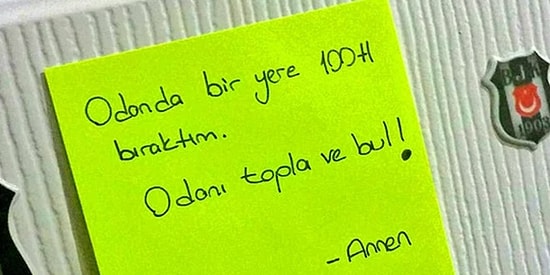 Odanda bir yere 100tl
bıraktım.
Odanı topla ve bul!
- Annen
BJK
1903